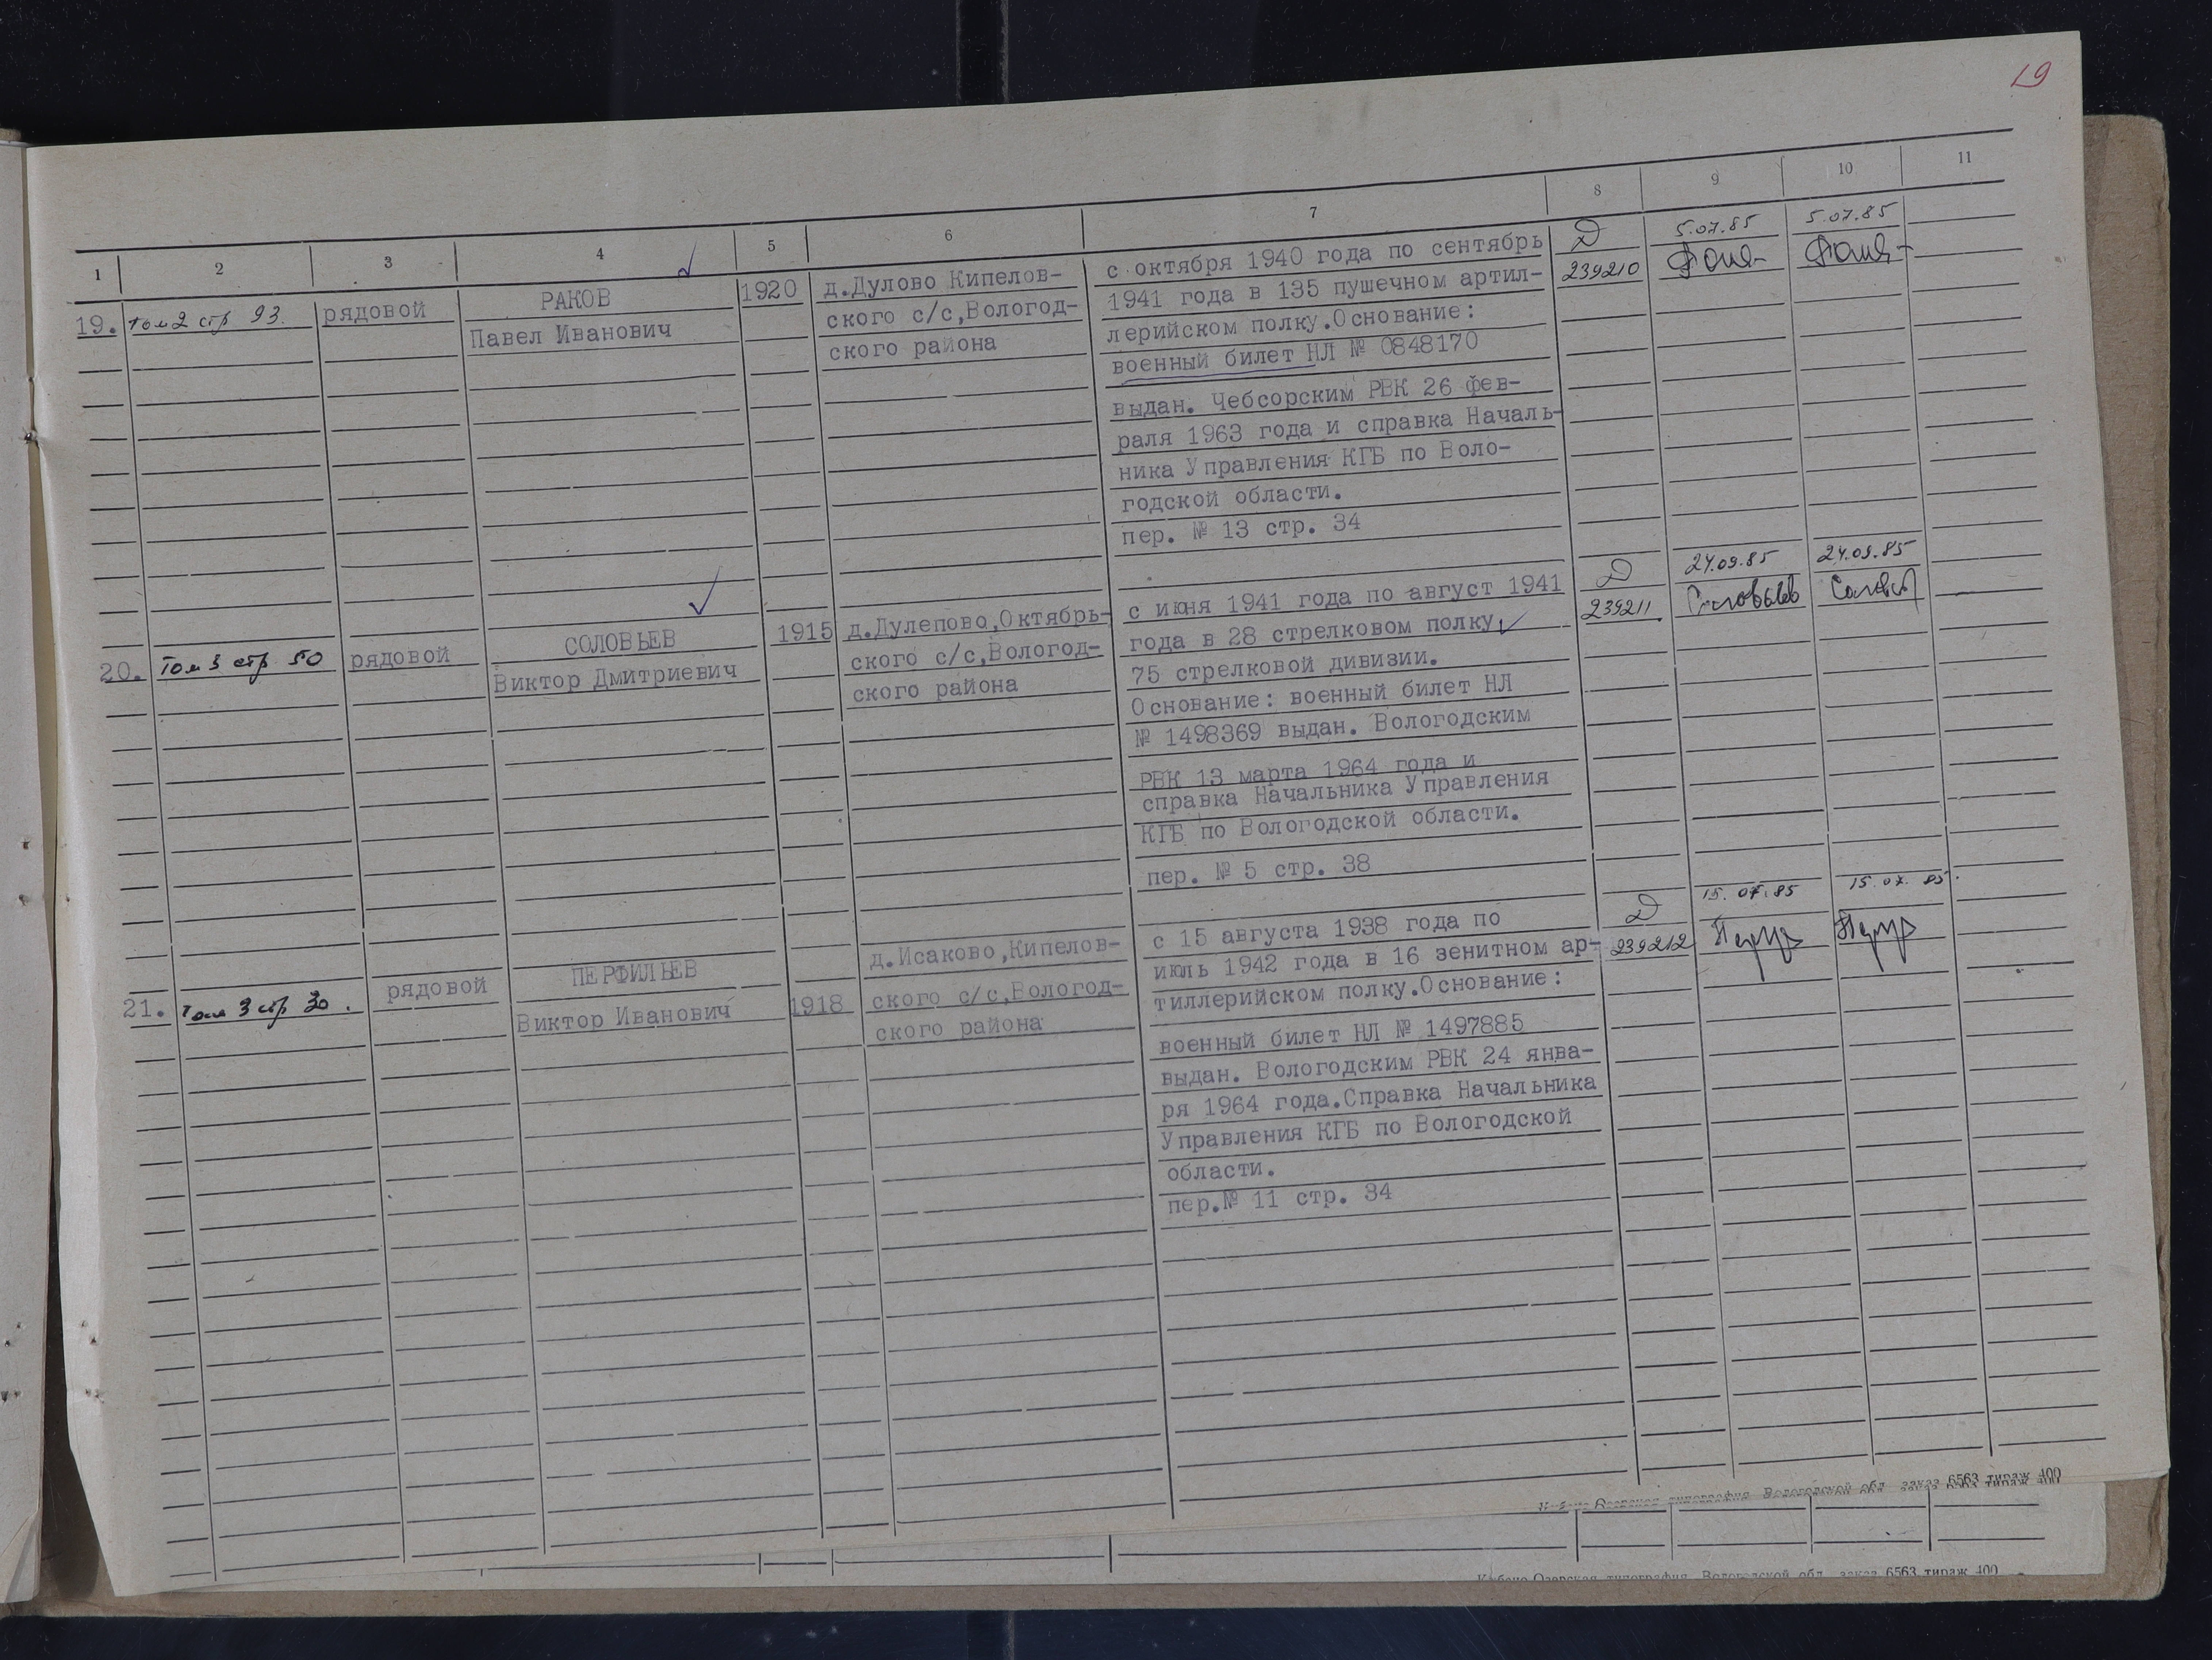 19
1 2 3 4 5 6 7 8 9 10 11
19. том 2 стр 93. рядовой
РАКОВ
Павел Иванович
1920
д.Дулово Кипелов-
ского с/с,Вологод-
ского района
с октября 1940 года по сентябрь
1941 года в 135 пушечном артил-
лерийском полку.Основание:
военный билет НЛ № 0848170
выдан. Чебсорским РВК 26 фев-
раля 1963 года и справка Началь-
ника Управления КГБ по Воло-
годской области.
пер. № 13 стр. 34
Д
239210
5.07.85
5.07.85
20. Том 3 стр 50 рядовой
СОЛОВЬЕВ
Виктор Дмитриевич
1915
д.Дулепово,Октябрь-
ского с/с,Вологод-
ского района
с июня 1941 года по август 1941
года в 28 стрелковом полку
75 стрелковой дивизии.
Основание: военный билет НЛ
№ 1498369 выдан. Вологодским
РВК 13 марта 1964 года и
справка Начальника Управления
КГБ по Вологодской области.
пер. № 5 стр. 38
Д
239211
24.09.85
Соловьев
24.09.85
21. Том 3 стр 30. рядовой
ПЕРФИЛЬЕВ
Виктор Иванович
1918
д.Исаково,Кипелов-
ского с/с,Вологод-
ского района
с 15 августа 1938 года по
июль 1942 года в 16 зенитном ар-
тиллерийском полку.Основание:
военный билет НЛ № 1497885
выдан. Вологодским РВК 24 янва-
ря 1964 года.Справка Начальника
Управления КГБ по Вологодской
области.
пер.№ 11 стр. 34
Д
239212
15.07.85
15.07.85
типография Вологодской обл. заказ 6563 тираж 400
типография Вологодской обл. заказ 6563 тираж 400